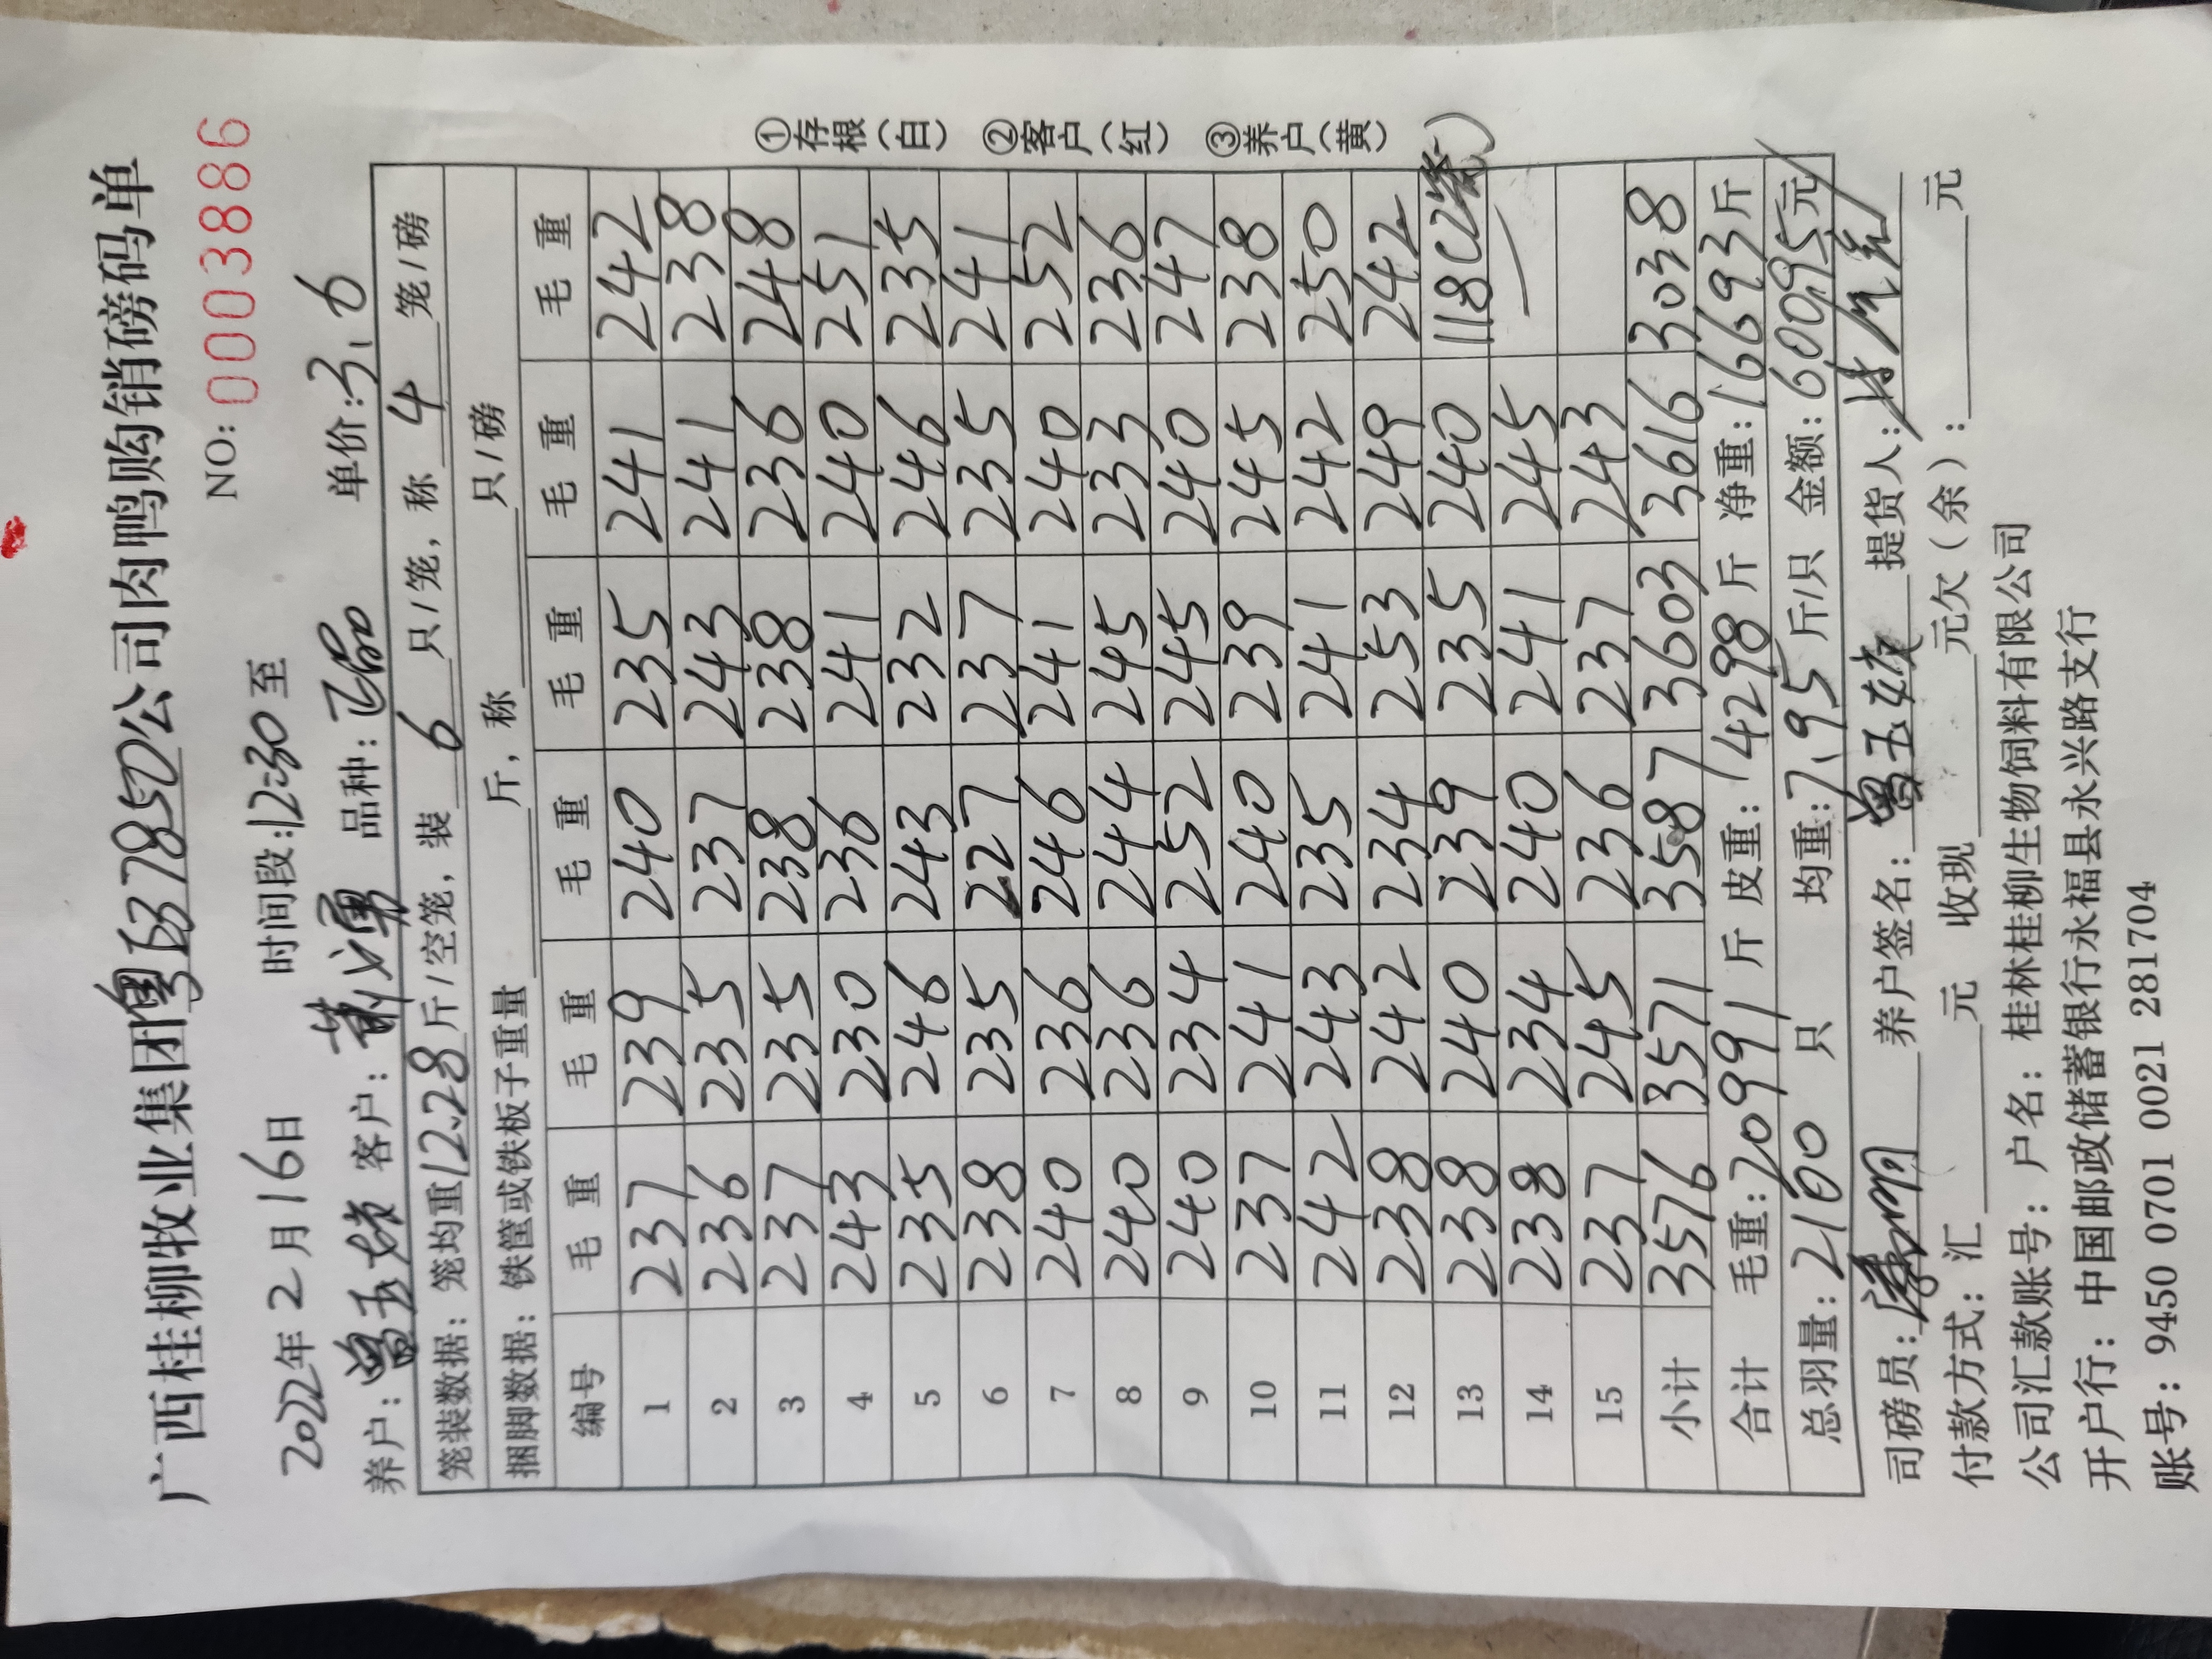 广西桂柳牧业集团粤B37850公司肉鸭购销磅码单
NO: 0003886
2022年 2 月 16 日 时间段:12:30至
养户: 曾玉 客户: 品种: 正品 单价:3.6
笼装数据: 笼均重12.28斤/空笼, 装 6 只/笼, 称 4 笼/磅
捆脚数据: 铁筐或铁板子重量 斤, 称 只/磅
编号 毛重 毛重 毛重 毛重 毛重 毛重
1 237 239 240 235 241 242
2 236 235 237 243 241 238
3 237 235 238 238 236 248
4 243 230 236 241 240 251
5 235 246 243 232 246 235
6 238 235 227 237 235 241
7 240 236 246 241 240 252
8 240 236 244 245 233 236
9 240 234 252 245 240 247
10 237 241 240 239 245 238
11 242 243 235 241 242 250
12 238 242 234 253 249 242
13 238 240 239 235 240 118(2笼)
14 238 234 240 241 245
15 237 245 236 237 243
小计 3576 3571 3587 3603 3616 3038
合计 毛重: 20991 斤 皮重: 4298 斤 净重: 16693 斤
总羽量: 2180 只 均重: 7.95 斤/只 金额: 60095元
司磅员: 养户签名: 曾玉 提货人:
付款方式: 汇 元 收现 元欠(余): 元
公司汇款账号: 户名: 桂林桂柳生物饲料有限公司
开户行: 中国邮政储蓄银行永福县永兴路支行
账号: 9450 0701 0021 281704
①存根(白) ②客户(红) ③养户(黄)